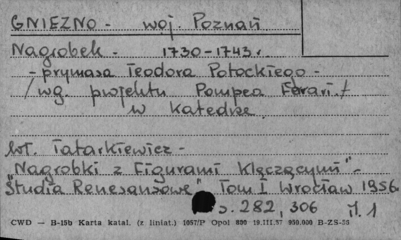 GNIEZNO - woj. Poznań
Nagrobek - 1730-1743 r
- prymasa Teodora Potockiego -
/wg. projektu Pompea Ferari./
w katedrze
Wł. Tatarkiewicz -
"Nagrobki z Figurami Klęczącymi" -
"Studia Renesansowe" Tom I Wrocław 1956.
s. 282, 306 il. 1
CWD — B-15b Karta katal. (z liniat.) 1057/P Opol 800 19.III.57 950.000 B-ZS-55